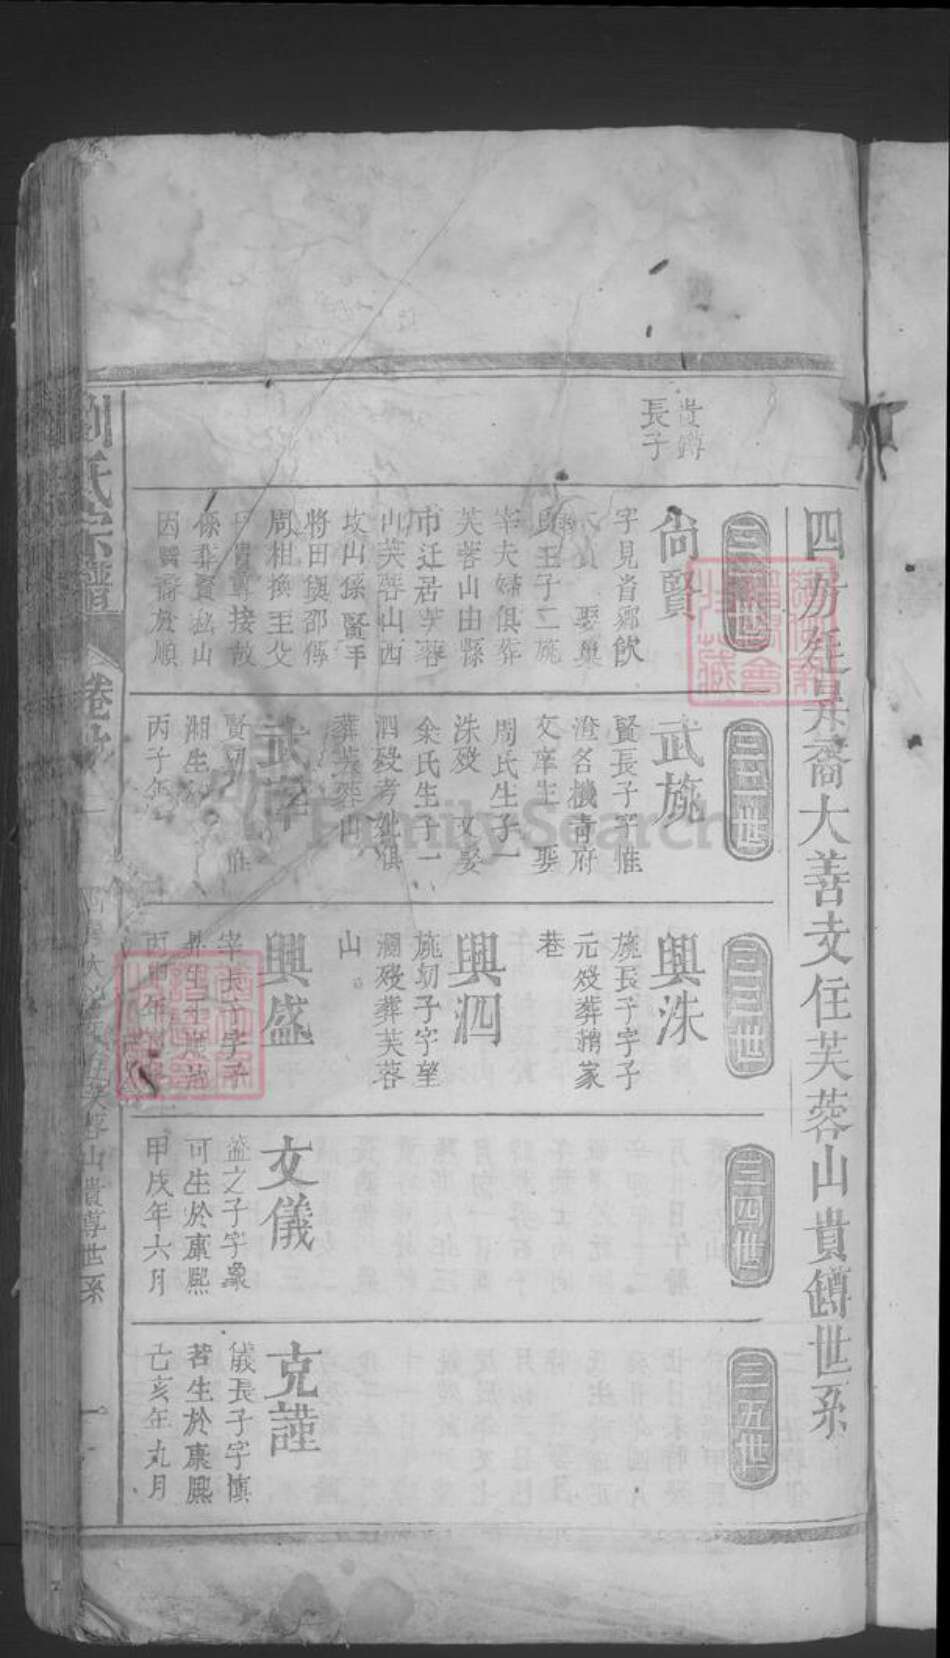 四房廷昇裔大善支住芙蓉山貴鐏世系
貴鐏
長子
三一世
尚賢
字見肯鄉飲
娶巢
氏生子二施
宰夫婦俱葬
芙蓉山由縣
市迁居芙蓉
山芙蓉山西
坟山係賢手
將田與邵傳
周相換至父
尊接故
係葬賢私山
因賢裔於順
三二世
武旒
賢長子字惟
澄各機青府
文庠生 娶
周氏生子一
洙殁 又娶
籴氏生子一
泗殁考妣俱
葬芙蓉山
武宰
賢 惟
湘生
丙子年
三三世
興洙
旒長子字子
元殁葬
巷
興泗
旒㓜子字望
瀾殁葬芙蓉
山
興盛
宰長子字子
丙申年
三四世
文儀
盛之子字象
可生於康熙
甲戌年六月
三五世
克謹
儀長子字慎
若生於康熙
己亥年九月
劉氏宗譜
卷
芙蓉山貴尊世系
一
FamilySearch